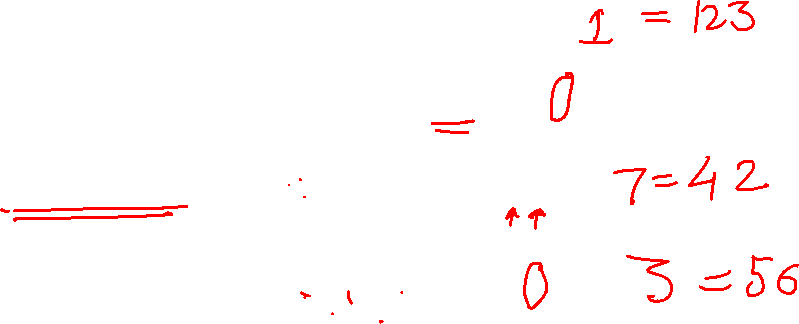 1 = 123
= 0
7=42
0 3=56